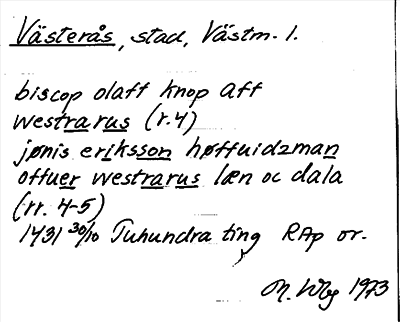 Västerås, stad, Västm. l.
biscop olaff knop aff
westrarus (r.4)
jønis eriksson høffuidzman
offuer westrarus læn oc dala
(rr. 4-5)
1431 30/10 Tuhundra ting RAp or.
1973